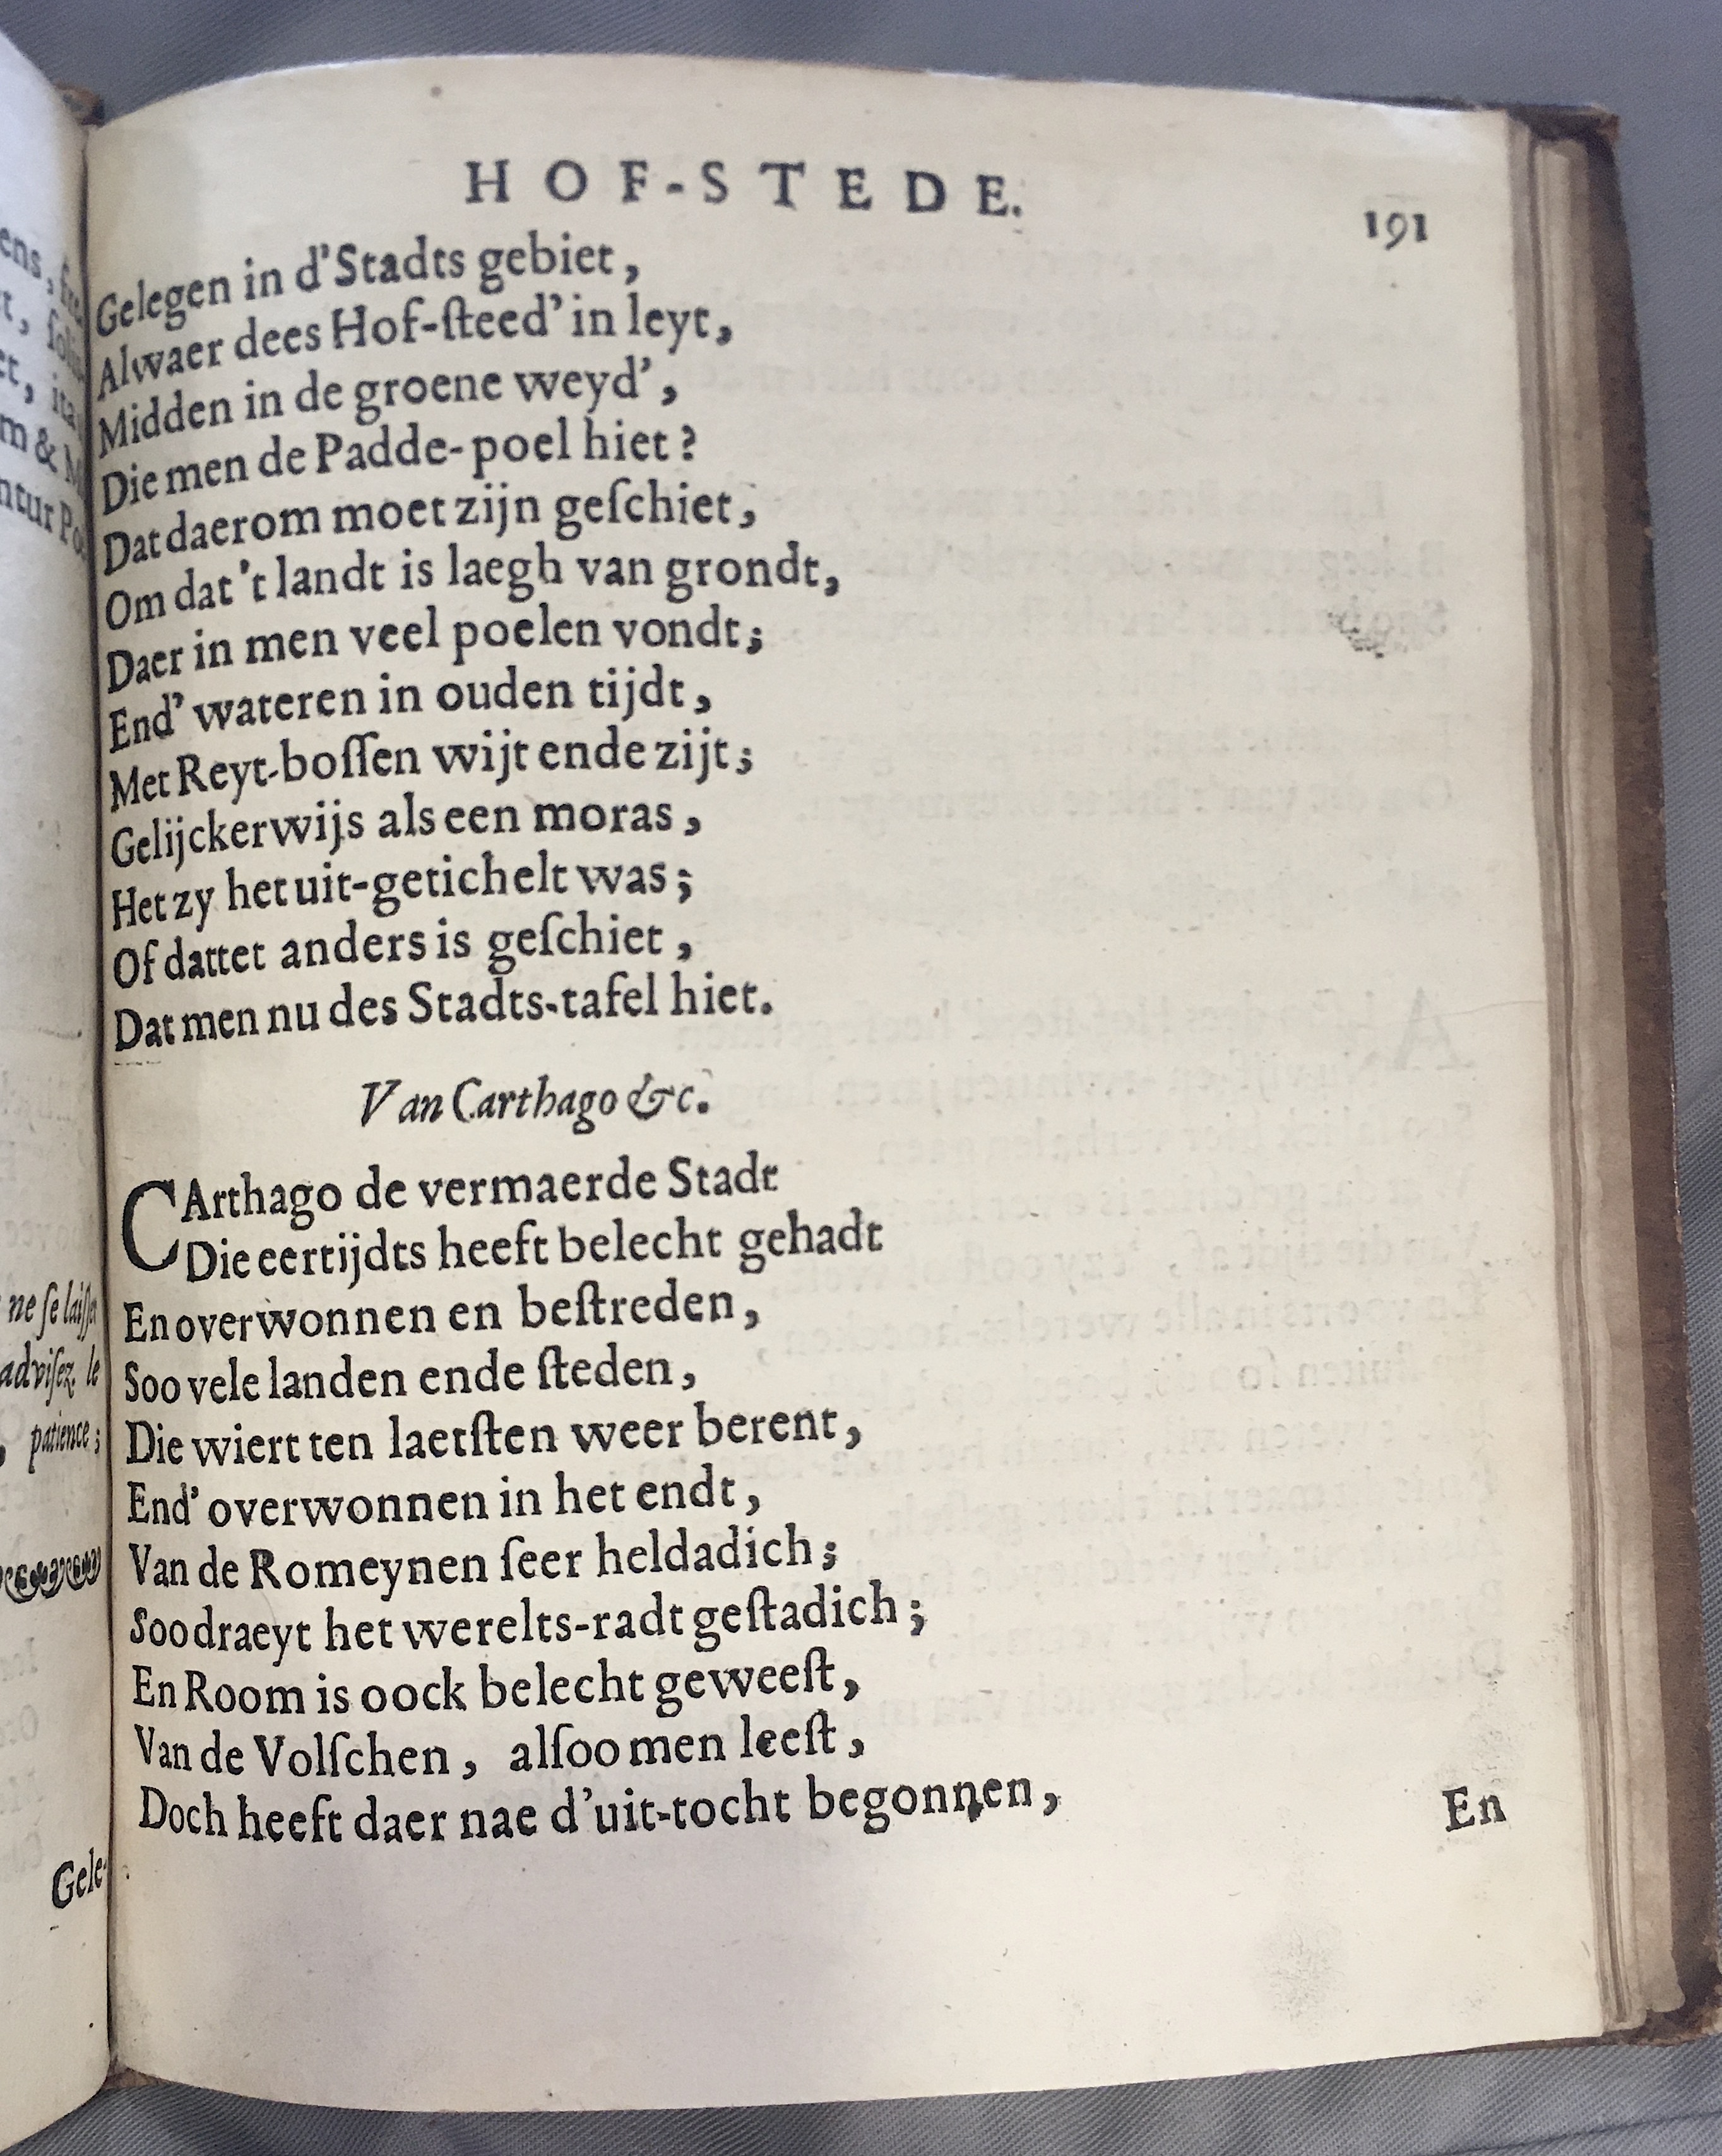 HOF-STEDE.
191
Gelegen in d'Stadts gebiet,
Alwaer dees Hof-ſteed' in leyt,
Midden in de groene weyd',
Die men de Padde-poel hiet?
Dat daerom moet zijn geſchiet,
Om dat 't landt is laegh van grondt,
Daer in men veel poelen vondt;
End' wateren in ouden tijdt,
Met Reyt-boſſen wijt ende zijt;
Gelijckerwijs als een moras,
Het zy het uit-getichelt was;
Of dattet anders is geſchiet,
Dat men nu des Stadts-tafel hiet.
Van Carthago &c.
CArthago de vermaerde Stadt
Die eertijdts heeft belecht gehadt
En overwonnen en beſtreden,
Soo vele landen ende ſteden,
Die wiert ten laetſten weer berent,
End' overwonnen in het endt,
Van de Romeynen ſeer heldadich;
Soo draeyt het werelts-radt geſtadich;
En Room is oock belecht geweeſt,
Van de Volſchen, alſoo men leeſt,
Doch heeft daer nae d'uit-tocht begonnen,
En
ens,
ita
m &
ntur
ne ſe
adviſez. le
patience;
Gele-